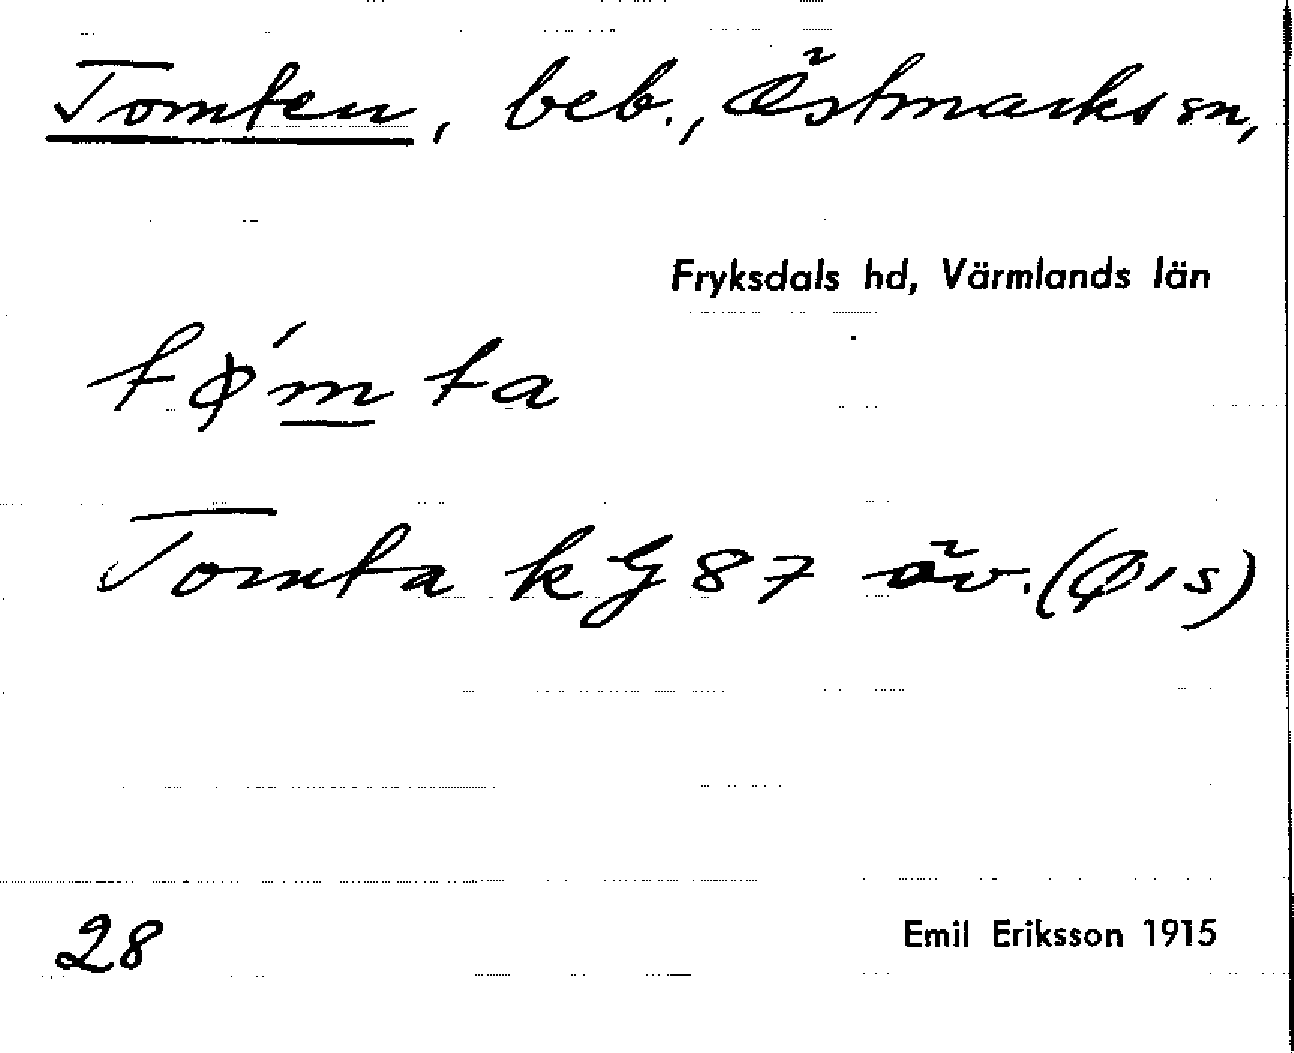 Tomten, beb., Östmarks sn,
Fryksdals hd, Värmlands län
tǿm̲ta
Tomta kG 87 öv. (Ø1s)
28
Emil Eriksson 1915